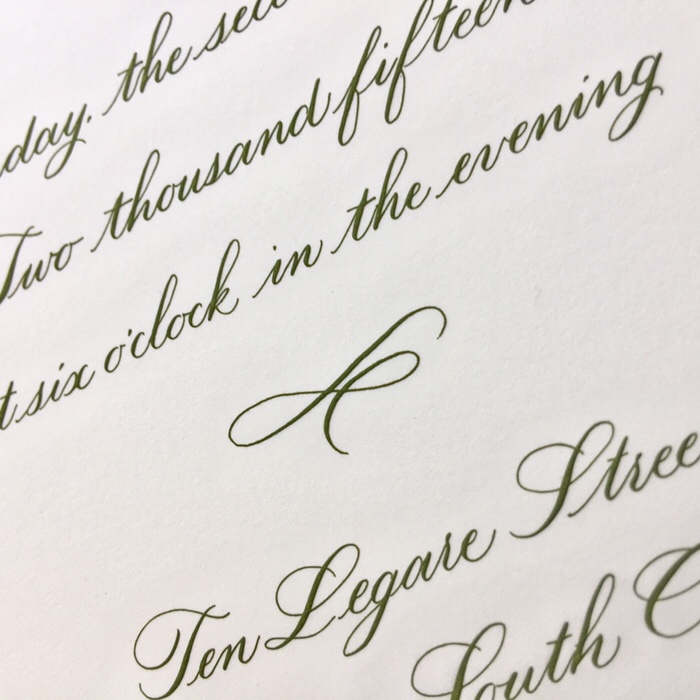 day. the
Two thousand fifteen
six o'clock in the evening
Ten Legare
South